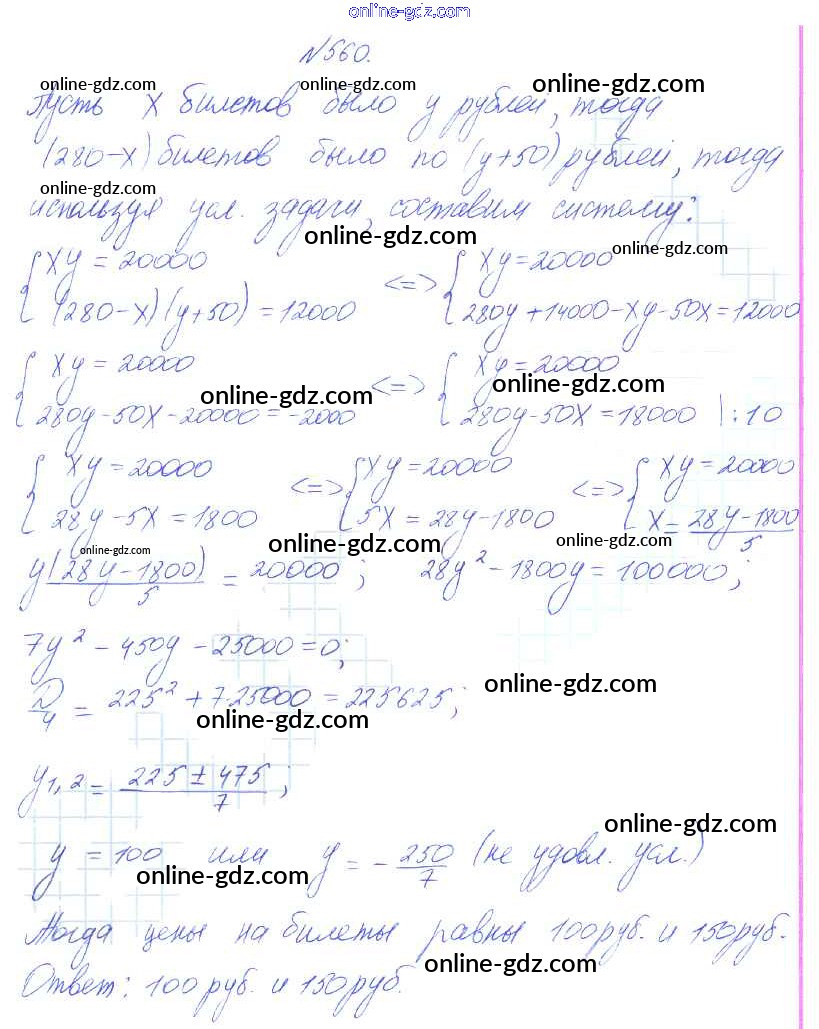 online-gdz.com
№560.
online-gdz.com online-gdz.com online-gdz.com
Пусть x билетов было y рублей, тогда
(280-x) билетов было по (y+50) рублей, тогда
online-gdz.com
используя усл. задачи, составим систему:
online-gdz.com online-gdz.com
{ xy = 20000 <=> { xy = 20000
(280-x)(y+50) = 12000 280y+14000-xy-50x=12000
{ xy = 20000 <=> { xy = 20000
online-gdz.com online-gdz.com
280y-50x-20000=-2000 280y-50x=18000 |:10
{ xy = 20000 <=> { xy = 20000 <=> { xy = 20000
28y-5x = 1800 5x = 28y-1800 x = (28y-1800)/5
online-gdz.com online-gdz.com online-gdz.com
y(28y-1800)/5 = 20000; 28y² - 1800y = 100000;
7y² - 450y - 25000 = 0;
D/4 = 225² + 7·25000 = 225625;
online-gdz.com
online-gdz.com
y1,2 = (225 ± 475)/7;
online-gdz.com
y = 100 или y = -250/7 (не удовл. усл.)
online-gdz.com
Тогда цены на билеты равны 100 руб. и 150 руб.
online-gdz.com
Ответ: 100 руб. и 150 руб.